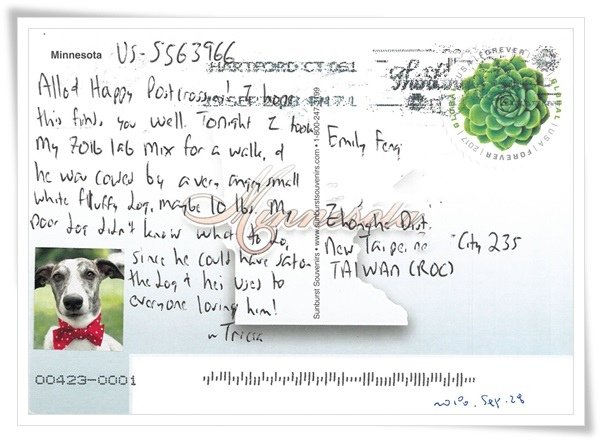 Minnesota US-5563966
HARTFORD CT 061
Happy Postcrossing! I hope
this finds you well. Tonight I took
my 70lb lab mix for a walk, &
he was cowed by a very angry small
white fluffy dog, maybe 10 lbs. My
poor dog didn't know what to do,
since he could have sat on
the dog & he's used to
everyone loving him!
~ Tricia
Minnesota
Sunburst Souvenirs • www.sunburstsouvenirs.com • 1-800-247-7199
Emily Feng
Zhonghe Dist.
New Taipei City 235
TAIWAN (ROC)
GLOBAL USA FOREVER 2017
00423-0001
Sep. 28